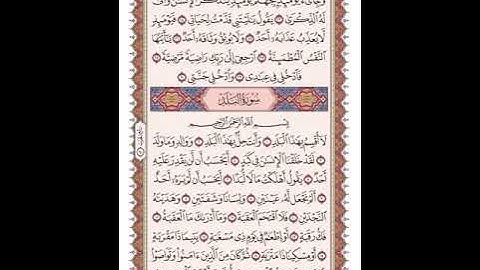 وَجِاْىٓءَ يَوْمَئِذٍۭ بِجَهَنَّمَ يَوْمَئِذٍ يَتَذَكَّرُ ٱلْإِنسَٰنُ وَأَنَّىٰ
لَهُ ٱلذِّكْرَىٰ ۝ يَقُولُ يَٰلَيْتَنِى قَدَّمْتُ لِحَيَاتِى ۝ فَيَوْمَئِذٍ
لَّا يُعَذِّبُ عَذَابَهُۥٓ أَحَدٌ ۝ وَلَا يُوثِقُ وَثَاقَهُۥٓ أَحَدٌ ۝ يَٰٓأَيَّتُهَا
ٱلنَّفْسُ ٱلْمُطْمَئِنَّةُ ۝ ٱرْجِعِىٓ إِلَىٰ رَبِّكِ رَاضِيَةً مَّرْضِيَّةً ۝
فَٱدْخُلِى فِى عِبَٰدِى ۝ وَٱدْخُلِى جَنَّتِى ۝
سُورَةُ الْبَلَدِ
بِسْمِ ٱللَّهِ ٱلرَّحْمَٰنِ ٱلرَّحِيمِ
لَآ أُقْسِمُ بِهَٰذَا ٱلْبَلَدِ ۝ وَأَنتَ حِلٌّۢ بِهَٰذَا ٱلْبَلَدِ ۝ وَوَالِدٍ وَمَا وَلَدَ
۝ لَقَدْ خَلَقْنَا ٱلْإِنسَٰنَ فِى كَبَدٍ ۝ أَيَحْسَبُ أَن لَّن يَقْدِرَ عَلَيْهِ
أَحَدٌ ۝ يَقُولُ أَهْلَكْتُ مَالًا لُّبَدًا ۝ أَيَحْسَبُ أَن لَّمْ يَرَهُۥٓ أَحَدٌ
۝ أَلَمْ نَجْعَل لَّهُۥ عَيْنَيْنِ ۝ وَلِسَانًا وَشَفَتَيْنِ ۝ وَهَدَيْنَٰهُ
ٱلنَّجْدَيْنِ ۝ فَلَا ٱقْتَحَمَ ٱلْعَقَبَةَ ۝ وَمَآ أَدْرَىٰكَ مَا ٱلْعَقَبَةُ ۝
فَكُّ رَقَبَةٍ ۝ أَوْ إِطْعَٰمٌ فِى يَوْمٍ ذِى مَسْغَبَةٍ ۝ يَتِيمًا ذَا مَقْرَبَةٍ
۝ أَوْ مِسْكِينًا ذَا مَتْرَبَةٍ ۝ ثُمَّ كَانَ مِنَ ٱلَّذِينَ ءَامَنُوا۟ وَتَوَاصَوْا۟